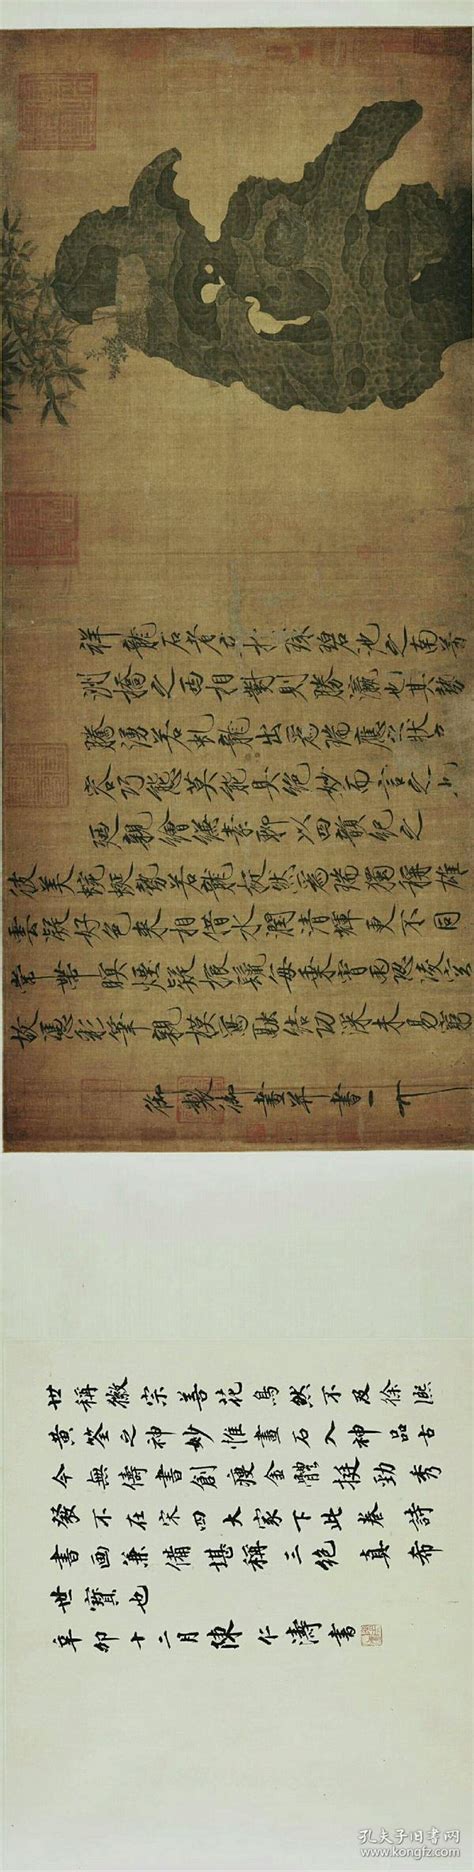 祥龍石者立於環碧池之南芳
洲橋之西相對則勝瀛也其勢
騰湧若虬龍出為瑞應之狀奇
容巧態莫能具絕妙而言之也
廼親繪縑素聊以四韻紀之
彼美蜿蜒勢若龍挺然為瑞獨稱雄
雲凝好色來相借水潤清輝更不同
常帶暝煙疑振鬣每乘宵雨恐凌空
故憑彩筆親模寫融結功深未易窮
御製御畫并書
世稱徽宗善花鳥然不及徐熙
黃筌之神妙惟畫石入神品古
今無儔書創瘦金體挺勁秀
發不在宋四大家下此卷詩
書画兼備堪稱三絕真希
世寶也
辛卯十二月陳仁濤書
孔夫子旧书网
www.kongfz.com